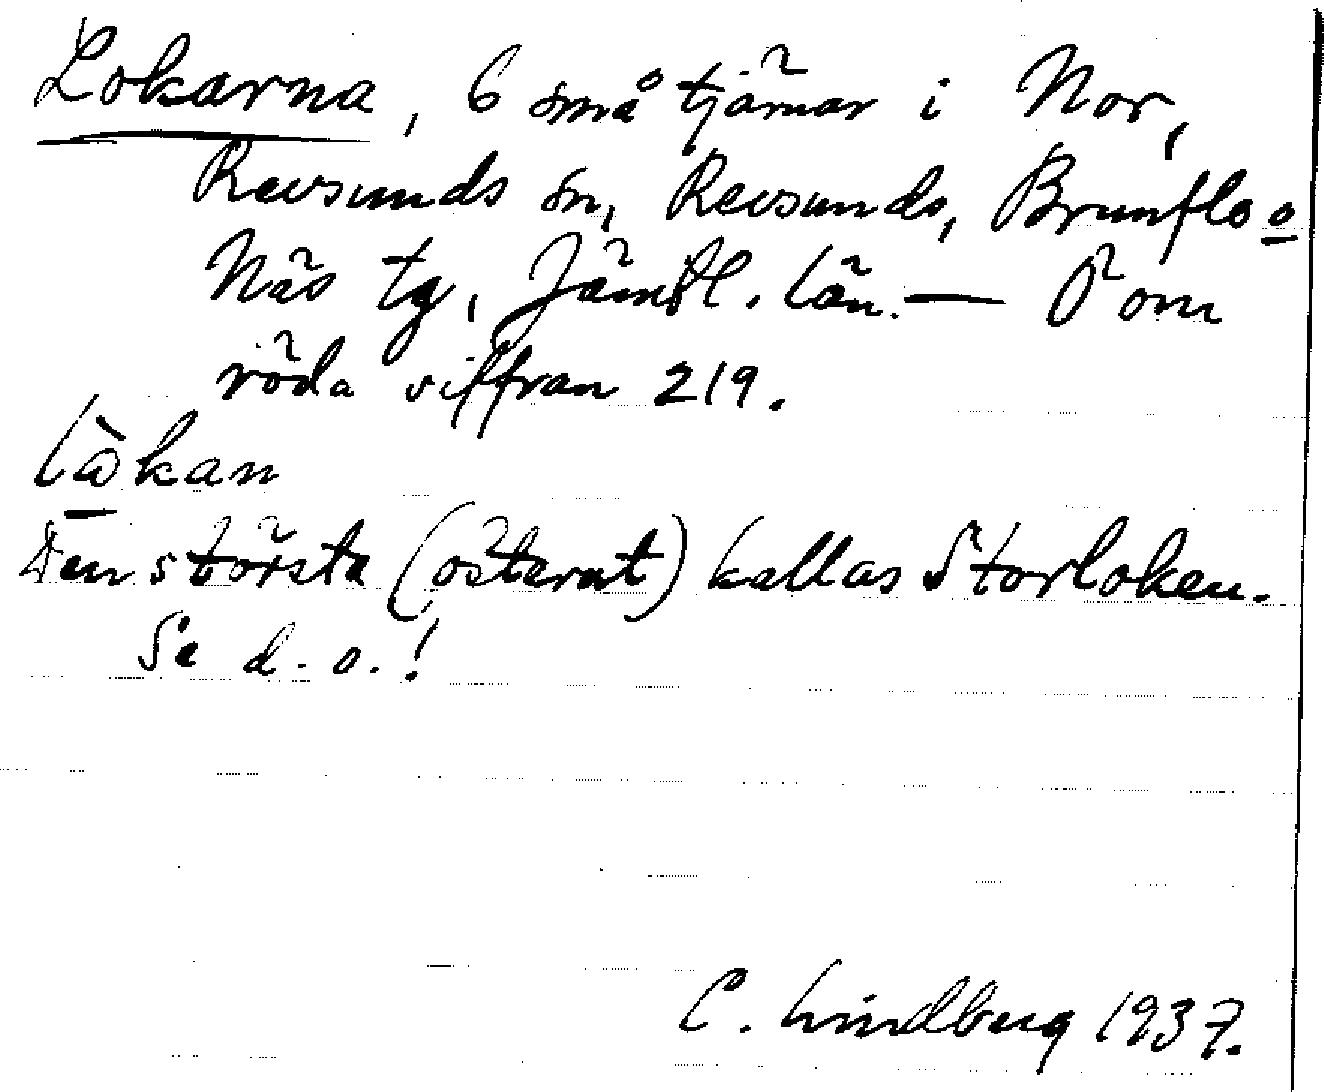 Lokarna, 6 små tjärnar i Nor,
Revsunds sn, Revsunds, Brunflo o
Näs tg, Jämtl. län. — Ö om
röda siffran 219.
låkan
Den största (österut) kallas Storloken.
Se d. o.!
C. Lindberg 1937.